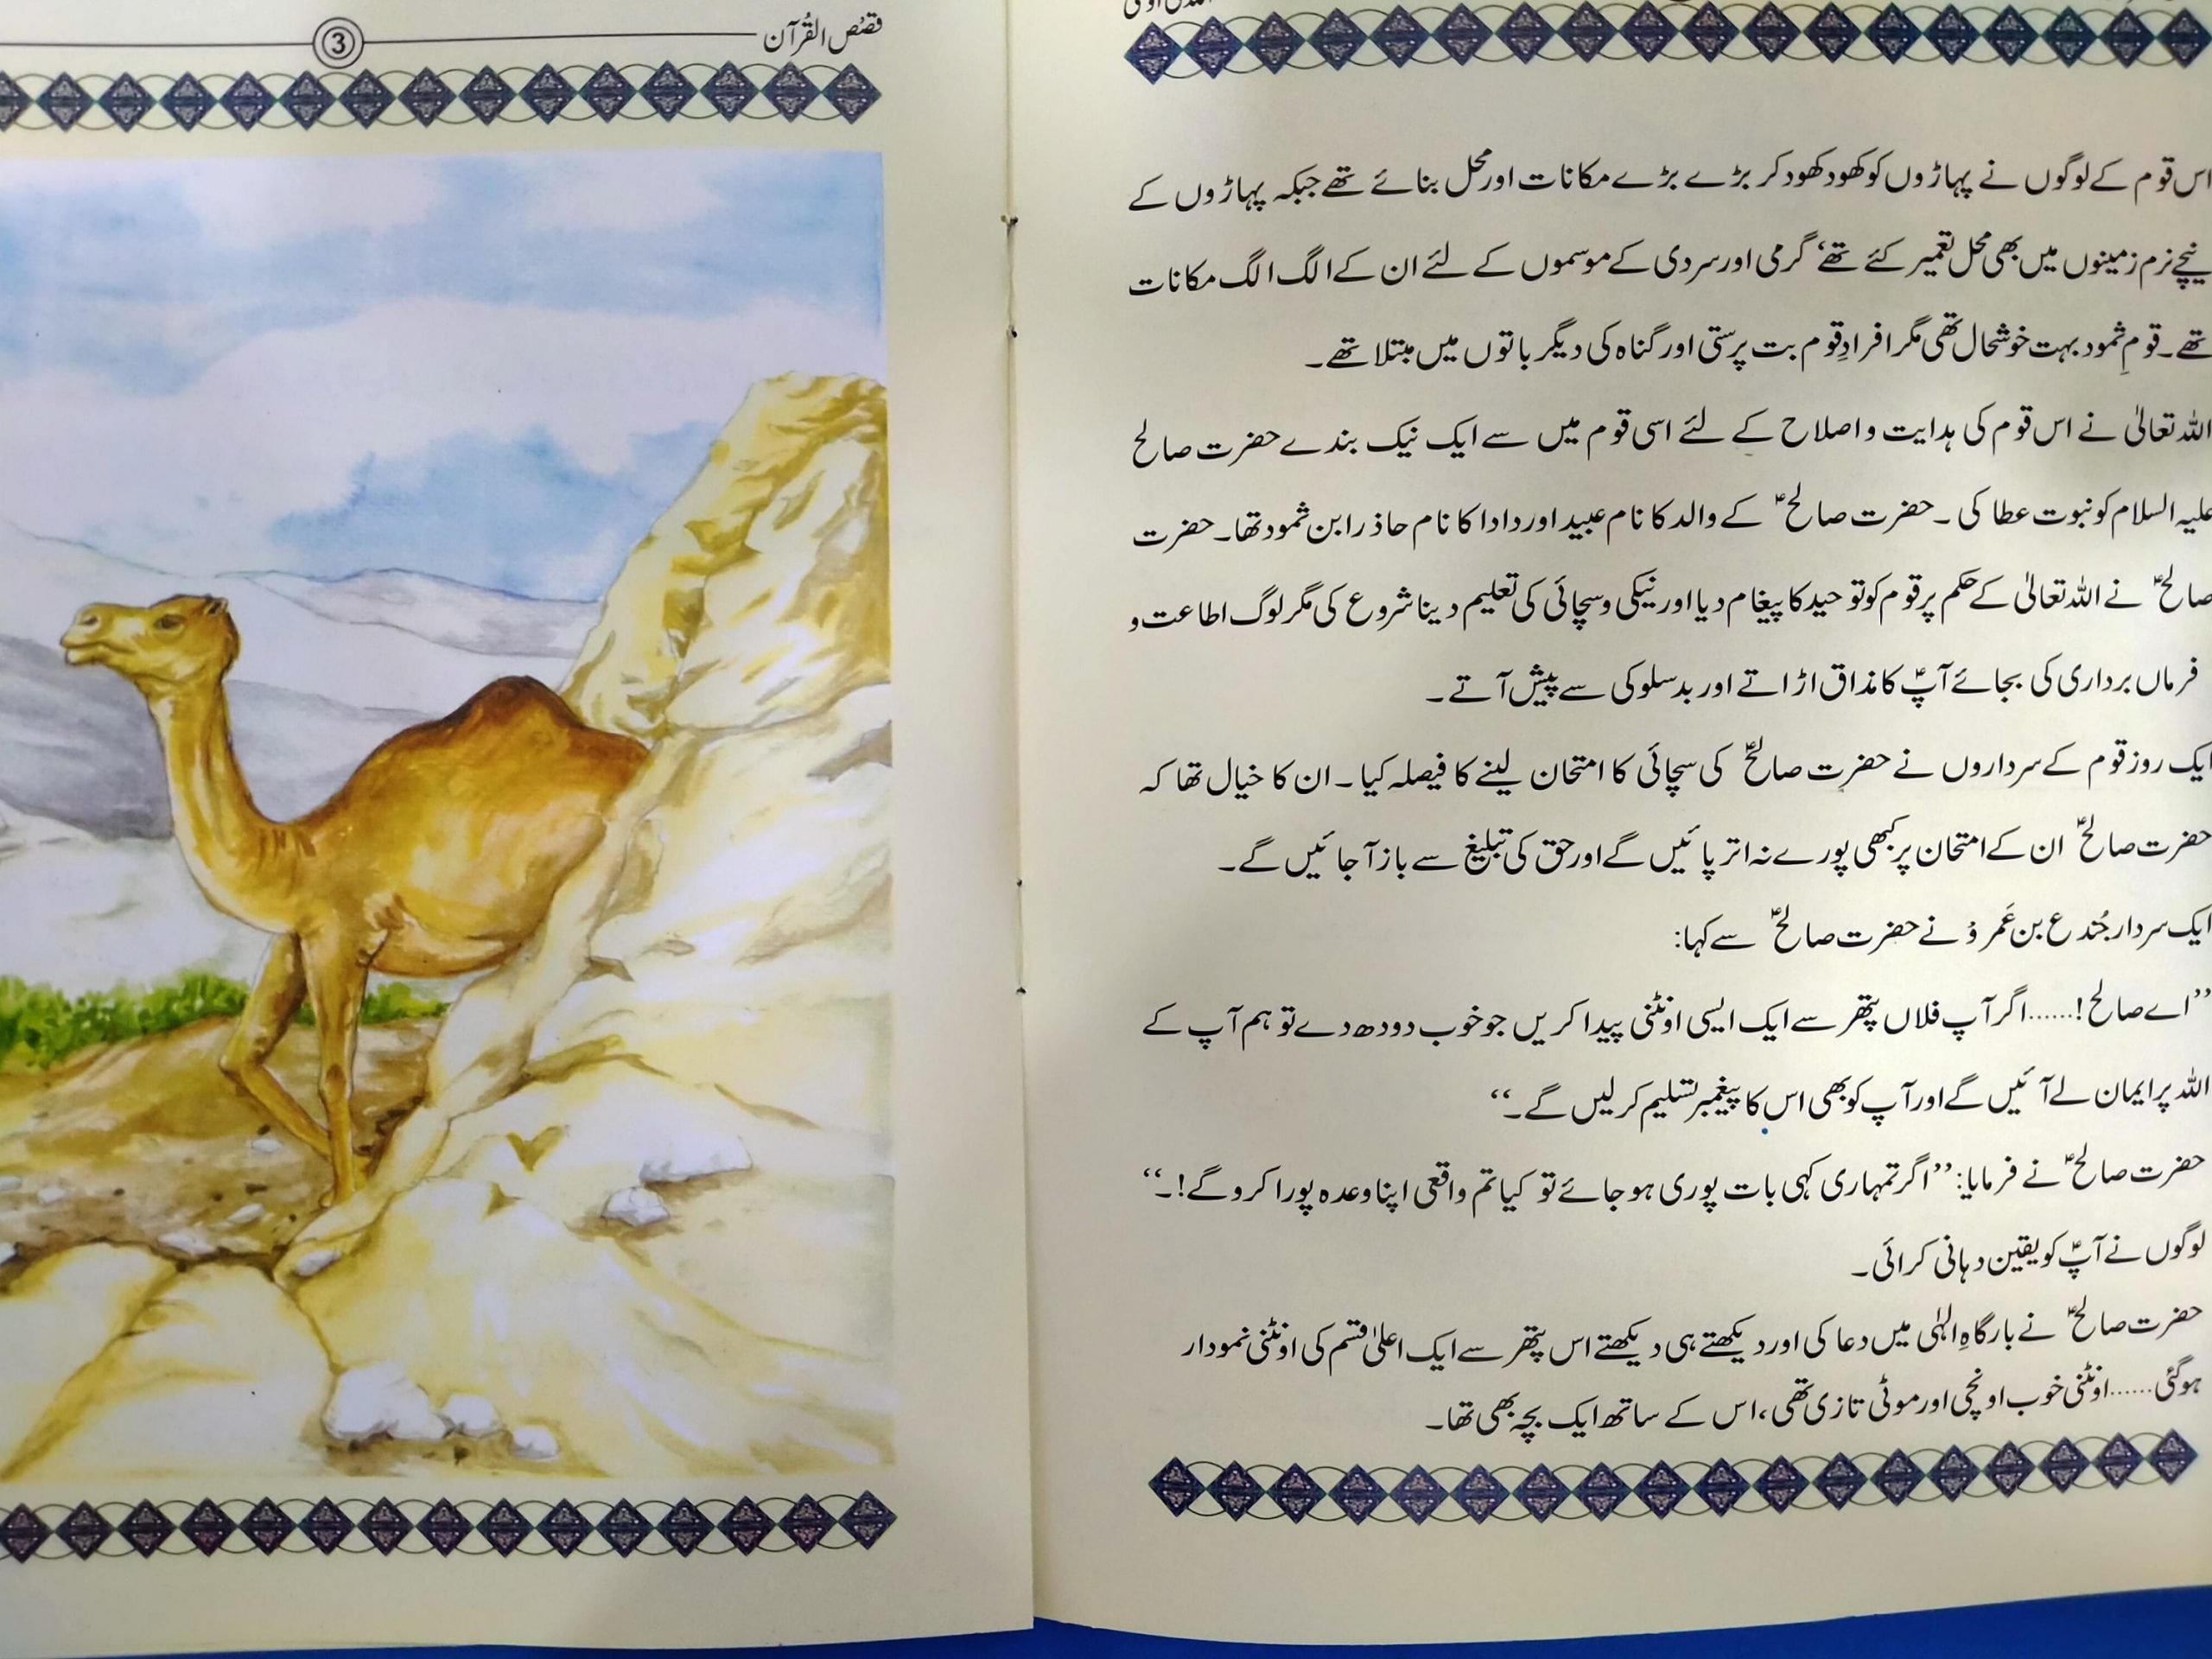 اس قوم کے لوگوں نے پہاڑوں کو کھود کھود کر بڑے بڑے مکانات اور محل بنائے تھے جبکہ پہاڑوں کے
نیچے نرم زمینوں میں بھی محل تعمیر کئے تھے‘ گرمی اور سردی کے موسموں کے لئے ان کے الگ الگ مکانات
تھے۔ قومِ ثمود بہت خوشحال تھی مگر افرادِ قوم بت پرستی اور گناہ کی دیگر باتوں میں مبتلا تھے۔
اللہ تعالیٰ نے اس قوم کی ہدایت و اصلاح کے لئے اسی قوم میں سے ایک نیک بندے حضرت صالح
علیہ السلام کو نبوت عطا کی۔ حضرت صالحؑ کے والد کا نام عبید اور دادا کا نام حاذر ابن ثمود تھا۔ حضرت
صالحؑ نے اللہ تعالیٰ کے حکم پر قوم کو توحید کا پیغام دیا اور نیکی و سچائی کی تعلیم دینا شروع کی مگر لوگ اطاعت و
فرماں برداری کی بجائے آپؑ کا مذاق اڑاتے اور بدسلوکی سے پیش آتے۔
ایک روز قوم کے سرداروں نے حضرت صالحؑ کی سچائی کا امتحان لینے کا فیصلہ کیا۔ ان کا خیال تھا کہ
حضرت صالحؑ ان کے امتحان پر کبھی پورے نہ اتر پائیں گے اور حق کی تبلیغ سے باز آ جائیں گے۔
ایک سردار جُندع بن عَمرو نے حضرت صالحؑ سے کہا:
’’اے صالح!......اگر آپ فلاں پتھر سے ایک ایسی اونٹنی پیدا کریں جو خوب دودھ دے تو ہم آپ کے
اللہ پر ایمان لے آئیں گے اور آپ کو بھی اس کا پیغمبر تسلیم کر لیں گے۔‘‘
حضرت صالحؑ نے فرمایا: ’’اگر تمہاری کہی بات پوری ہو جائے تو کیا تم واقعی اپنا وعدہ پورا کرو گے!۔‘‘
لوگوں نے آپؑ کو یقین دہانی کرائی۔
حضرت صالحؑ نے بارگاہِ الٰہی میں دعا کی اور دیکھتے ہی دیکھتے اس پتھر سے ایک اعلیٰ قسم کی اونٹنی نمودار
ہو گئی......اونٹنی خوب اونچی اور موٹی تازی تھی، اس کے ساتھ ایک بچہ بھی تھا۔
قصص القرآن
3